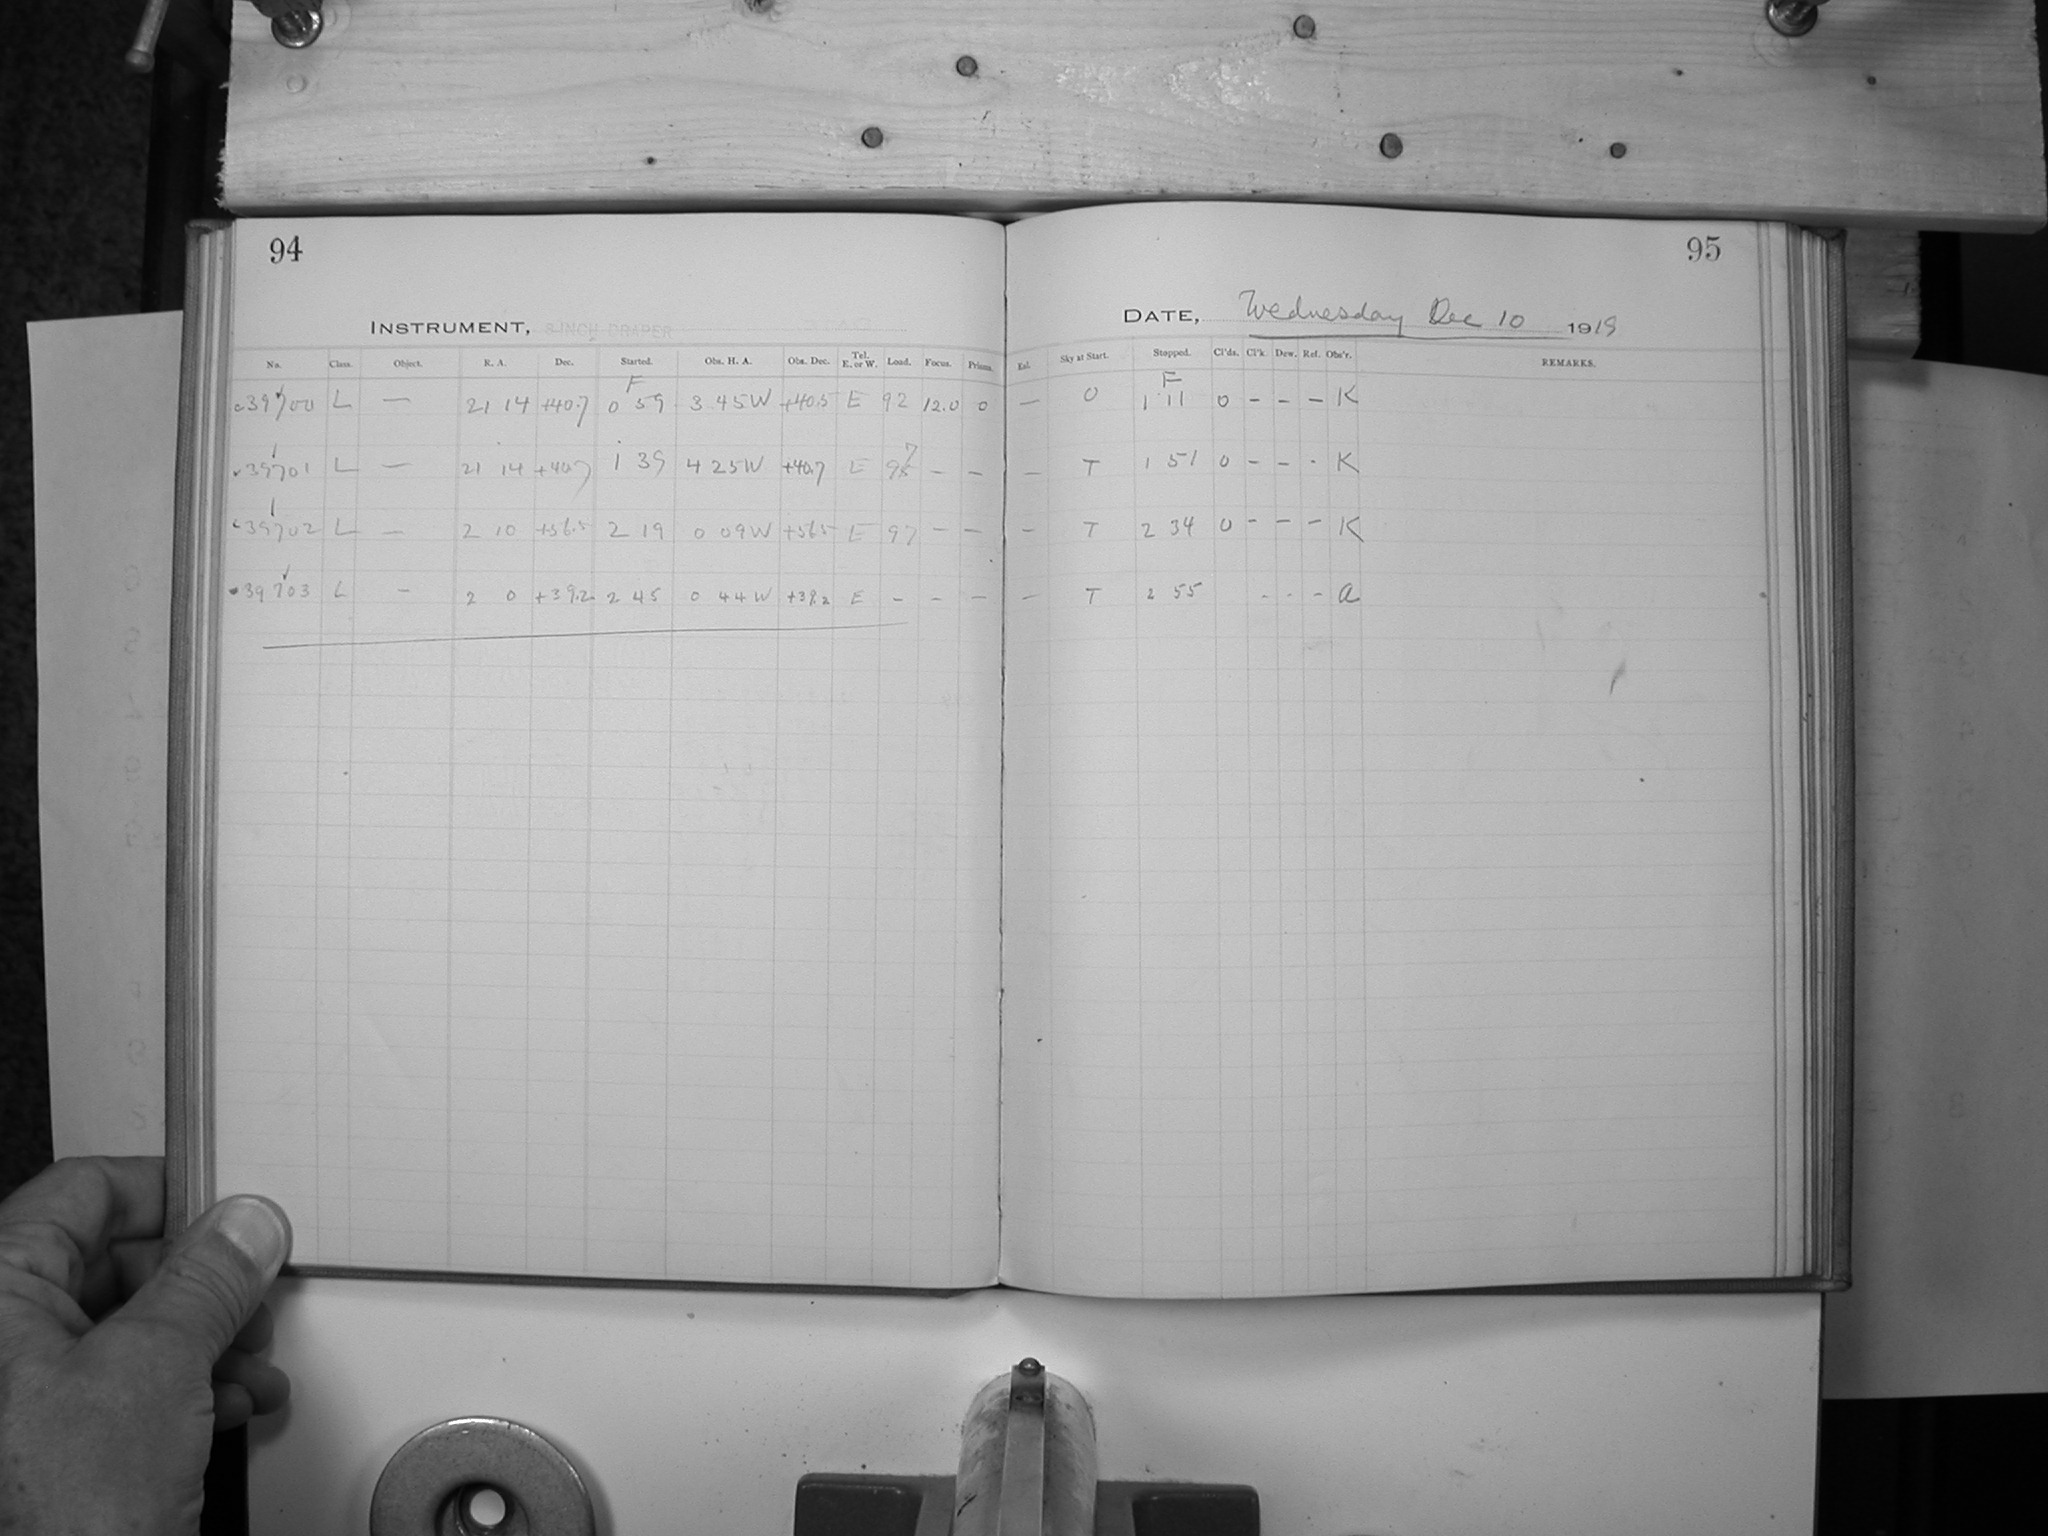 94
INSTRUMENT, 8-INCH DRAPER
No. Class. Object. R. A. Dec. Started. Obs. H. A. Obs. Dec. Tel. E. or W. Load. Focus. Prisms.
39700 L — 21 14 +40.7 F 0 59 3 45W +40.5 E 92 12.0 0
39701 L — 21 14 +40.7 1 39 4 25W +40.7 E 7 — —
39702 L — 2 10 +56.5 2 19 0 09W +56.5 E 97 — —
39703 L — 2 0 +39.2 2 45 0 44W +39.2 E — — —
95
DATE, Wednesday Dec 10 1919
Exl. Sky at Start. Stopped. Cl'ds. Cl'k. Dew. Ref. Obs'r. REMARKS.
— 0 F 1 11 0 — — — K
— T 1 51 0 — — - K
— T 2 34 0 — — — K
— T 2 55 - - - a